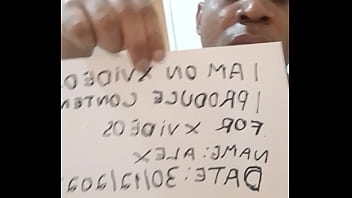 I AM ON XVIDEO
I PRODUCE CONTEN
FOR XVIDEOS
NAME: ALEX
DATE: 30/12/202